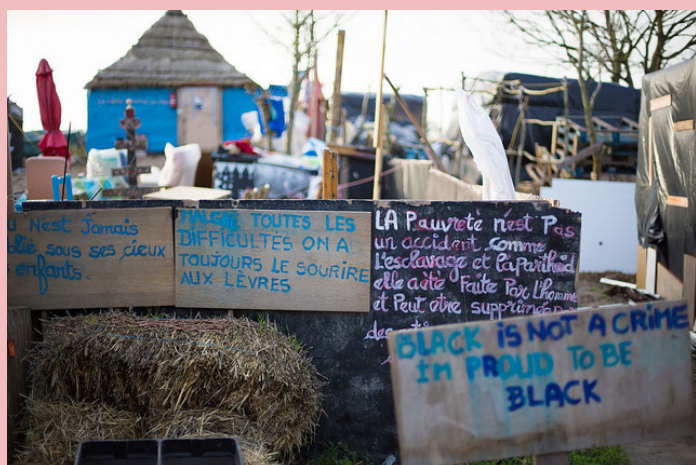 N'est Jamais
sous ses cieux
enfants.
MALGRÉ TOUTES LES
DIFFICULTÉS ON A
TOUJOURS LE SOURIRE
AUX LÈVRES
LA Pauvreté n'est Pas
un accident. comme
l'esclavage et l'aPartheid
elle a été Faite Par l'homme
et Peut etre
BLACK IS NOT A CRIME
I'M PROUD TO BE
BLACK